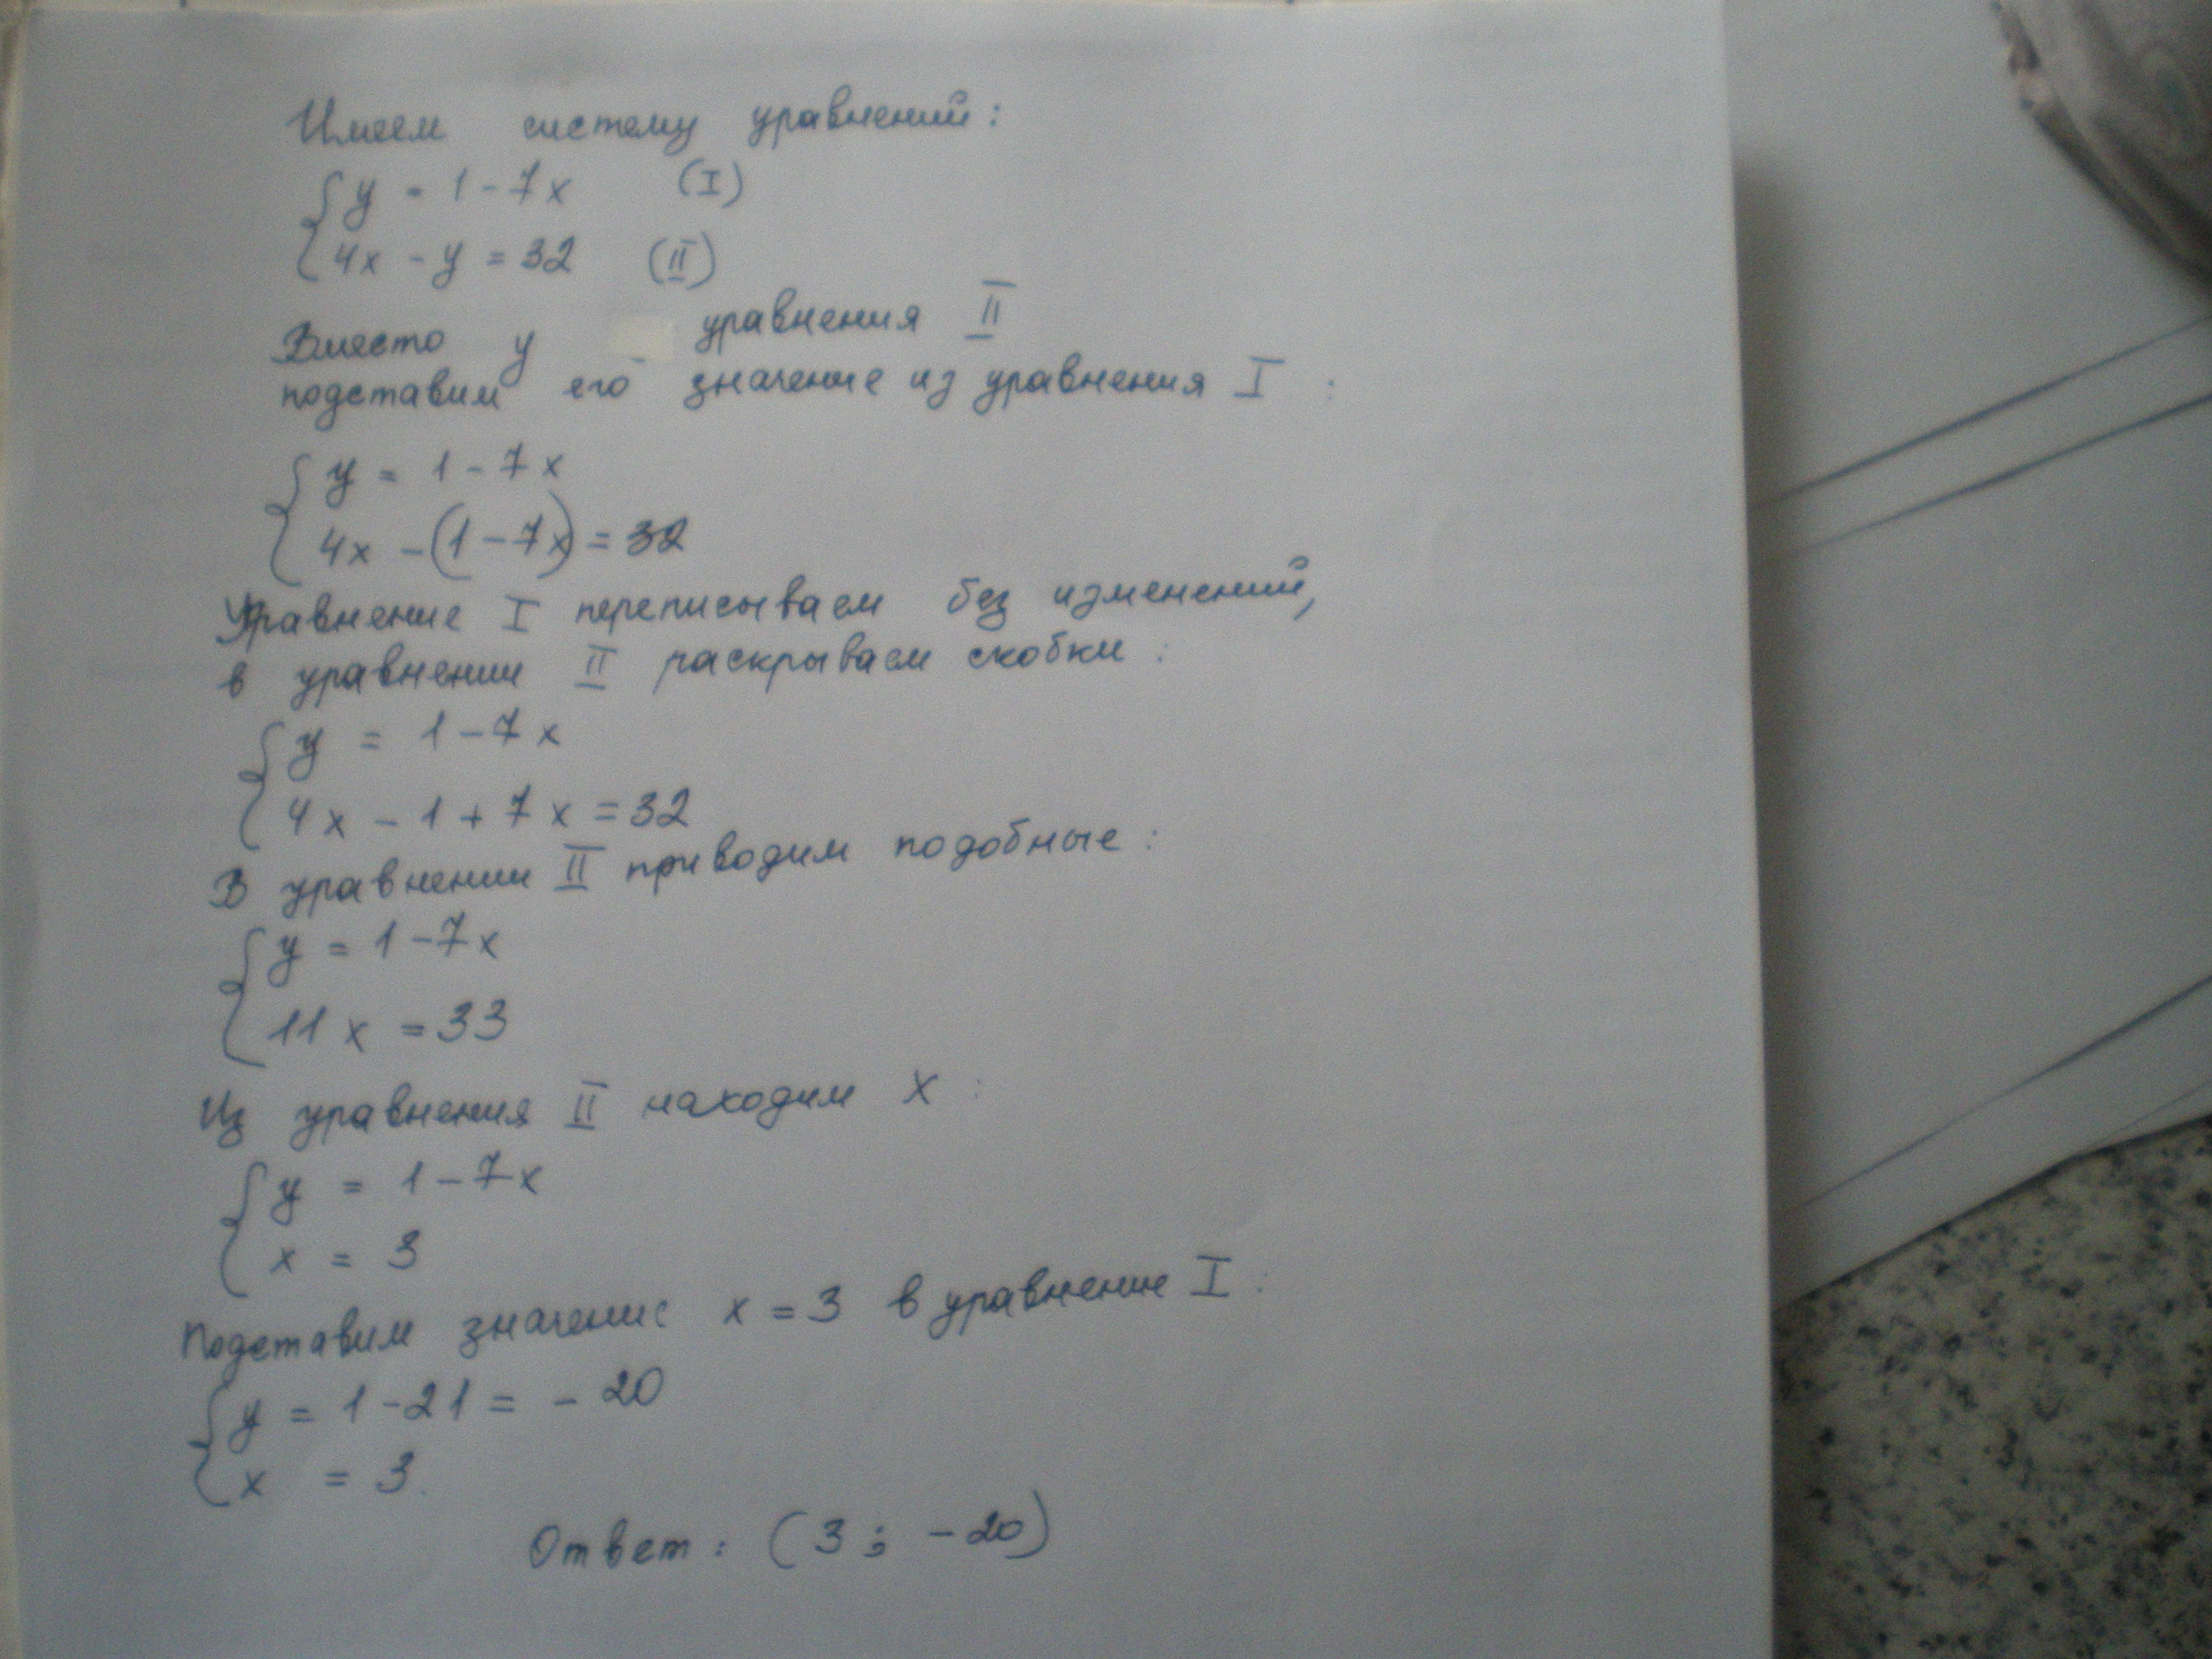 Имеем систему уравнений:
{ y = 1 - 7x (I)
4x - y = 32 (II)
Вместо y уравнения II
подставим его значение из уравнения I :
{ y = 1 - 7x
4x - (1 - 7x) = 32
Уравнение I переписываем без изменений,
в уравнении II раскрываем скобки :
{ y = 1 - 7x
4x - 1 + 7x = 32
В уравнении II приводим подобные :
{ y = 1 - 7x
11x = 33
Из уравнения II находим x :
{ y = 1 - 7x
x = 3
Подставим значение x = 3 в уравнение I :
{ y = 1 - 21 = - 20
x = 3.
Ответ: (3 ; - 20)